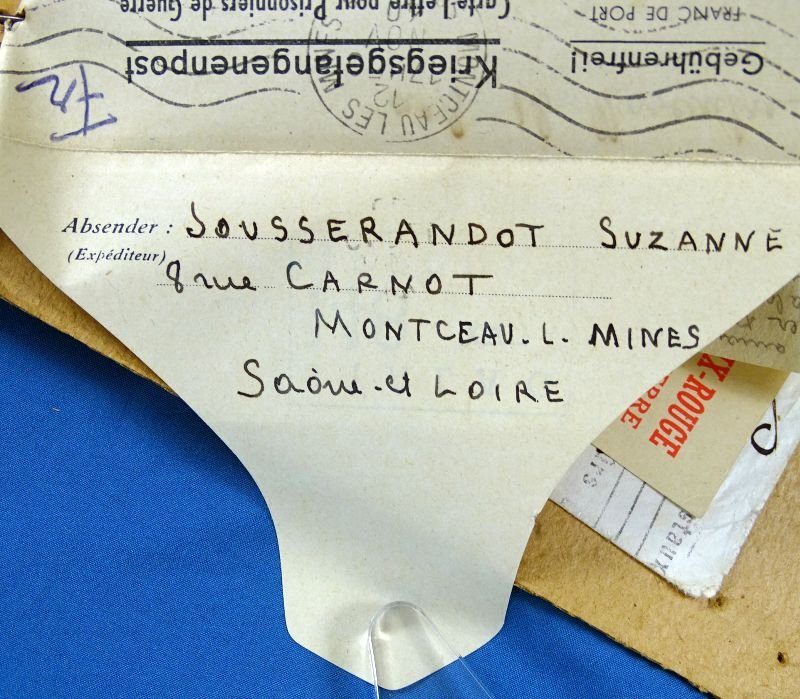 Carte-Lettre pour Prisonniers de Guerre
FRANC DE PORT
Kriegsgefangenenpost
Gebührenfrei!
MONTCEAU LES MINES
12
Absender : JOUSSERANDOT SUZANNE
(Expéditeur) 8 rue CARNOT
MONTCEAU. L. MINES
Saône-et LOIRE
X-ROUGE